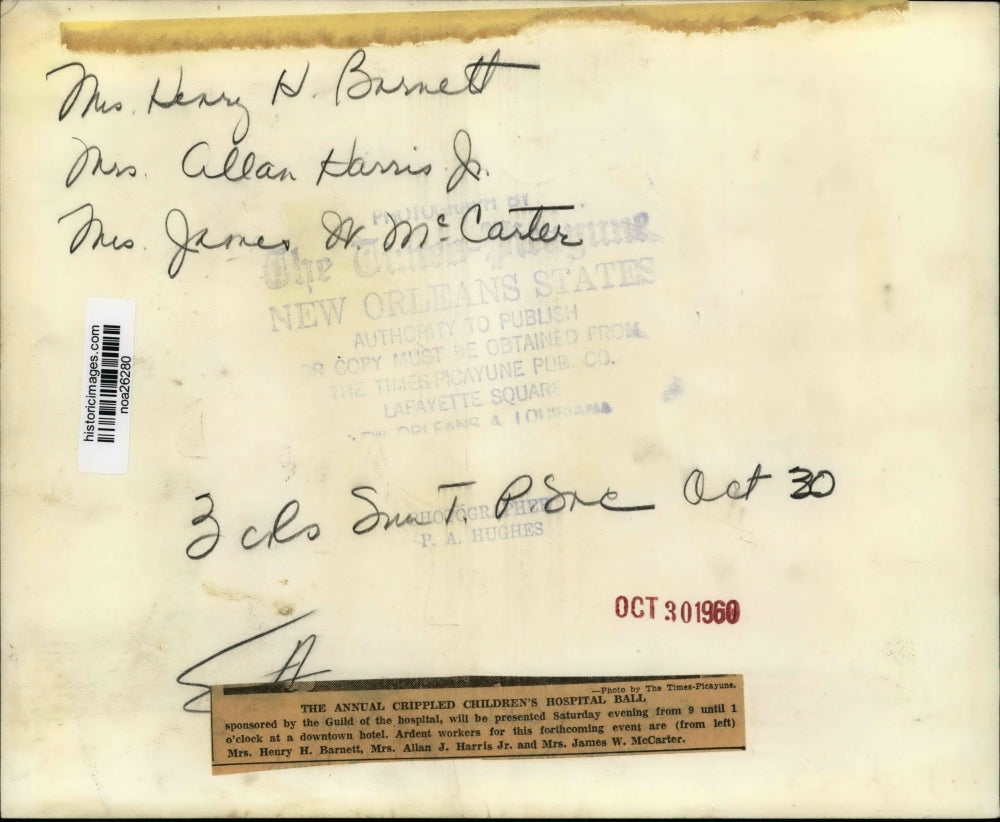 Mrs. Henry H. Barnett
Mrs. Allan Harris Jr.
Mrs. James W. McCarter
PHOTOGRAPH BY
The Times-Picayune
NEW ORLEANS STATES
AUTHORITY TO PUBLISH
OR COPY MUST BE OBTAINED FROM
THE TIMES-PICAYUNE PUB. CO.
LAFAYETTE SQUARE
NEW ORLEANS 4, LOUISIANA
historicimages.com
noa26280
3 cols Sun T. P. Soc Oct 30
PHOTOGRAPHER
P. A. HUGHES
OCT 30 1960
—Photo by The Times-Picayune.
THE ANNUAL CRIPPLED CHILDREN'S HOSPITAL BALL
sponsored by the Guild of the hospital, will be presented Saturday evening from 9 until 1
o'clock at a downtown hotel. Ardent workers for this forthcoming event are (from left)
Mrs. Henry H. Barnett, Mrs. Allan J. Harris Jr. and Mrs. James W. McCarter.